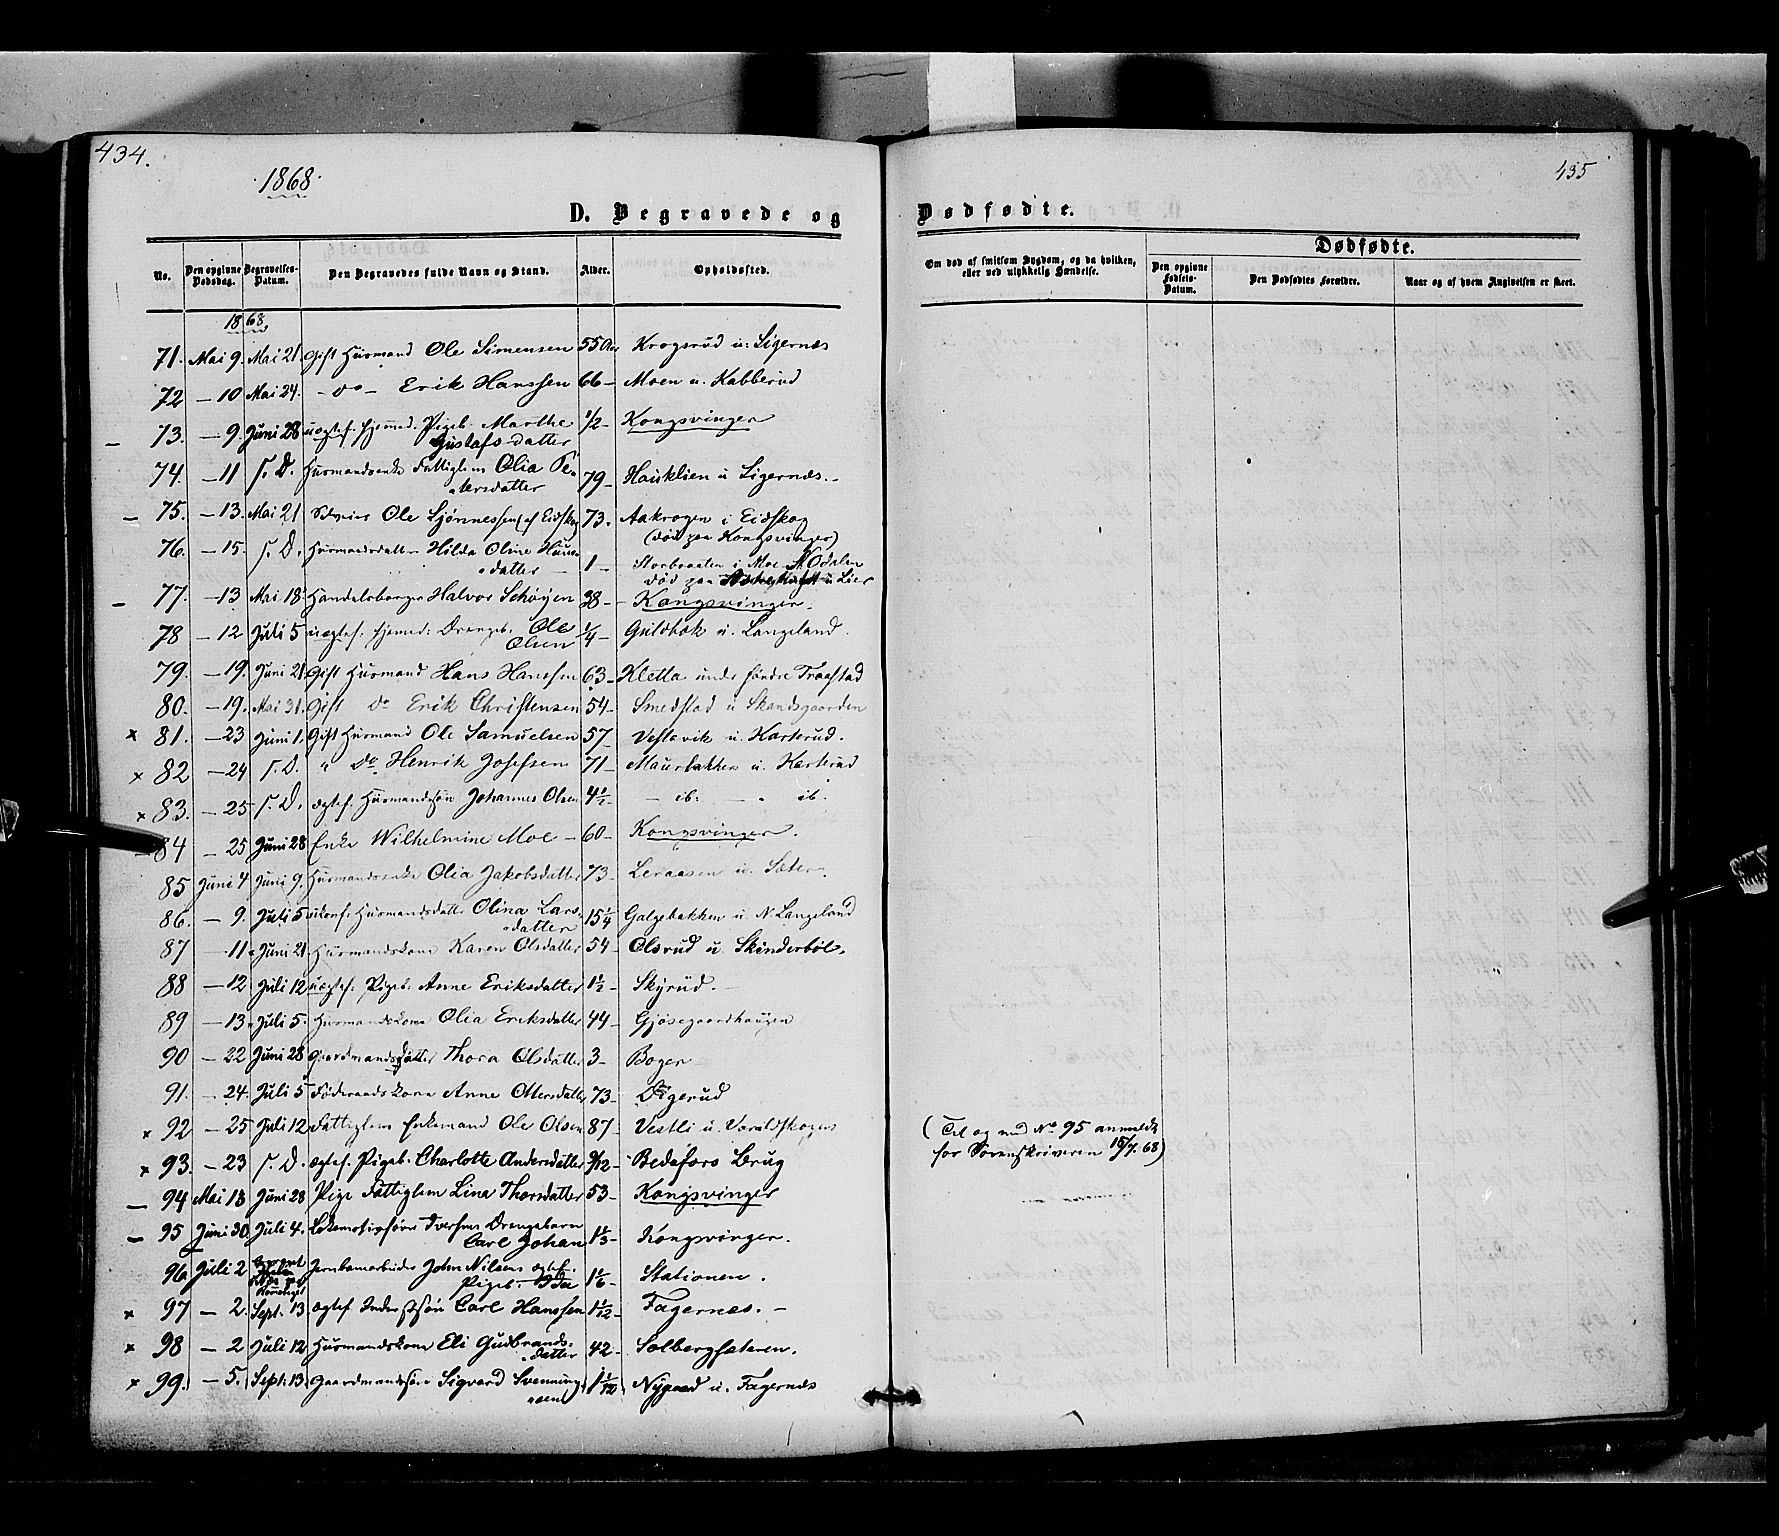 434.
1868.
D. Begravede og
No. Den opgivne Dødsdag. Begravelses-Datum. Den Begravedes fulde Navn og Stand. Alder. Opholdssted.
1868.
71. Mai 9. Mai 21. Gift Husmand Ole Simensen 55 Aar Krogsrud u: Sigernæs
72 — 10 Mai 24. — do — Erik Hanssen 66 — Moen u. Kabberud
73. — 9. Juni 28 uægtef. hjemmed. Pigeb. Marthe 1/2 — Kongsvinger
Gustafsdatter
74. — 11 s. D. Husmandsenke Fattiglem Olia Pe-
tersdatter 79 — Hauklien u Sigernæs. —
75. — 13. Mai 21 Ole (af Eidskog 73. Aakrogen i Eidskog
(død paa Kongsvinger)
76. — 15. s. D. Husmandsdatter Hilda Oline Hans-
datter — 1 — Storbraaten i Moe N. Odalen
død paa u Lier
77. — 13 Mai 18. Handelsborger Halvor Schøyen 38 — Kongsvinger.
78 — 12 Juli 5 uægtef. hjemmed: Drengeb. Ole 1/4 — Guldbæk u. Langeland.
Olsen
79. — 19. Juni 21 Gift Husmand Hans Hanssen 63 — Kletta under søndre Traastad
80. — 19. Mai 31. Gift Do Erik Christensen 54 — Smedstad u Skandsgaarden
x 81. — 23 Juni 1. Gift Husmand Ole Samuelsen 57 — Vestavik u. Karterud.
x 82 — 24 s. D. " Do Henrik Josefsen 71 — Maurbakken u. Karterud
x 83. — 25 s. D. ægtef. Husmandssøn Johannes Olsen 4 1/2 — — ib: — " ib.
84 — 25 Juni 28 Enke Wilhelmine Moe — 60 — Kongsvinger.
85 Juni 4 Juni 9. Husmandsenke Olia Jakobsdatter 73 — Leraasen u. Sæter.
86. — 9. Juli 5 ukonf. Husmandsdatter Olina Lars-
datter 15 1/4 Galgebakken u. N. Langeland
87 — 11 Juni 21 Husmandskone Karen Olsdatter 54 — Olsrud u. Skinderbøl.
88 — 12 Juli 12 uægtef. Pigeb. Anne Eriksdatter 1 1/2 — Skyrud. —
89 — 13 Juli 5. Husmandskone Olia Eriksdatter 44 — Gjøsegaardhaugen
90 — 22 Juni 28 Gaardmandsdatter Thora Olsdatter 3 — Boger
91. — 24. Juli 5 Føderaadskone Anne Ottersdatter 73 — Digerud
x 92 — 25 Juli 12 Fattiglem Enkemand Ole Olsen 87 — Vestli u. Varaldskogen
x 93. — 23 s. D. ægtef. Pigeb. Charlotte Andersdatter 9/12 — Bedafors Brug
— 94 Mai 18 Juni 28 Pige Fattiglem Lina Thorsdatter 53 — Kongsvinger
— 95 Juni 30 Juli 4. Iversens Drengebarn
Carl Johan 1 1/3 — Kongsvinger.
96 Juli 2 Jernbanearbeider John Nilsens ægtef.
Pigeb. Ida 1 1/6 — Stationen.
x 97 — 2. Sept. 13 ægtef Inderstsøn Carl Hanssen 1 1/12 — Fagernæs. —
x 98 — 2 Juli 12 Husmandskone Eli Gudbrands-
datter 42 — Solbergsæteren.
x 99. — 5. Sept. 13. Gaardmandssøn Sigvard Svenning-
sen 1 1/12 Nygaard u. Fagernæs
435
Dødfødte.
Om død af smitsom Sygdom, og da hvilken, eller ved ulykkelig Hændelse.
Dødfødte.
Den opgivne Fødsels-Datum. Den Dødfødtes Forældre. Naar og af hvem Angivelsen er skeet.
(Til og med No 95 anmeldt
for Sorenskriveren 15/7. 68)